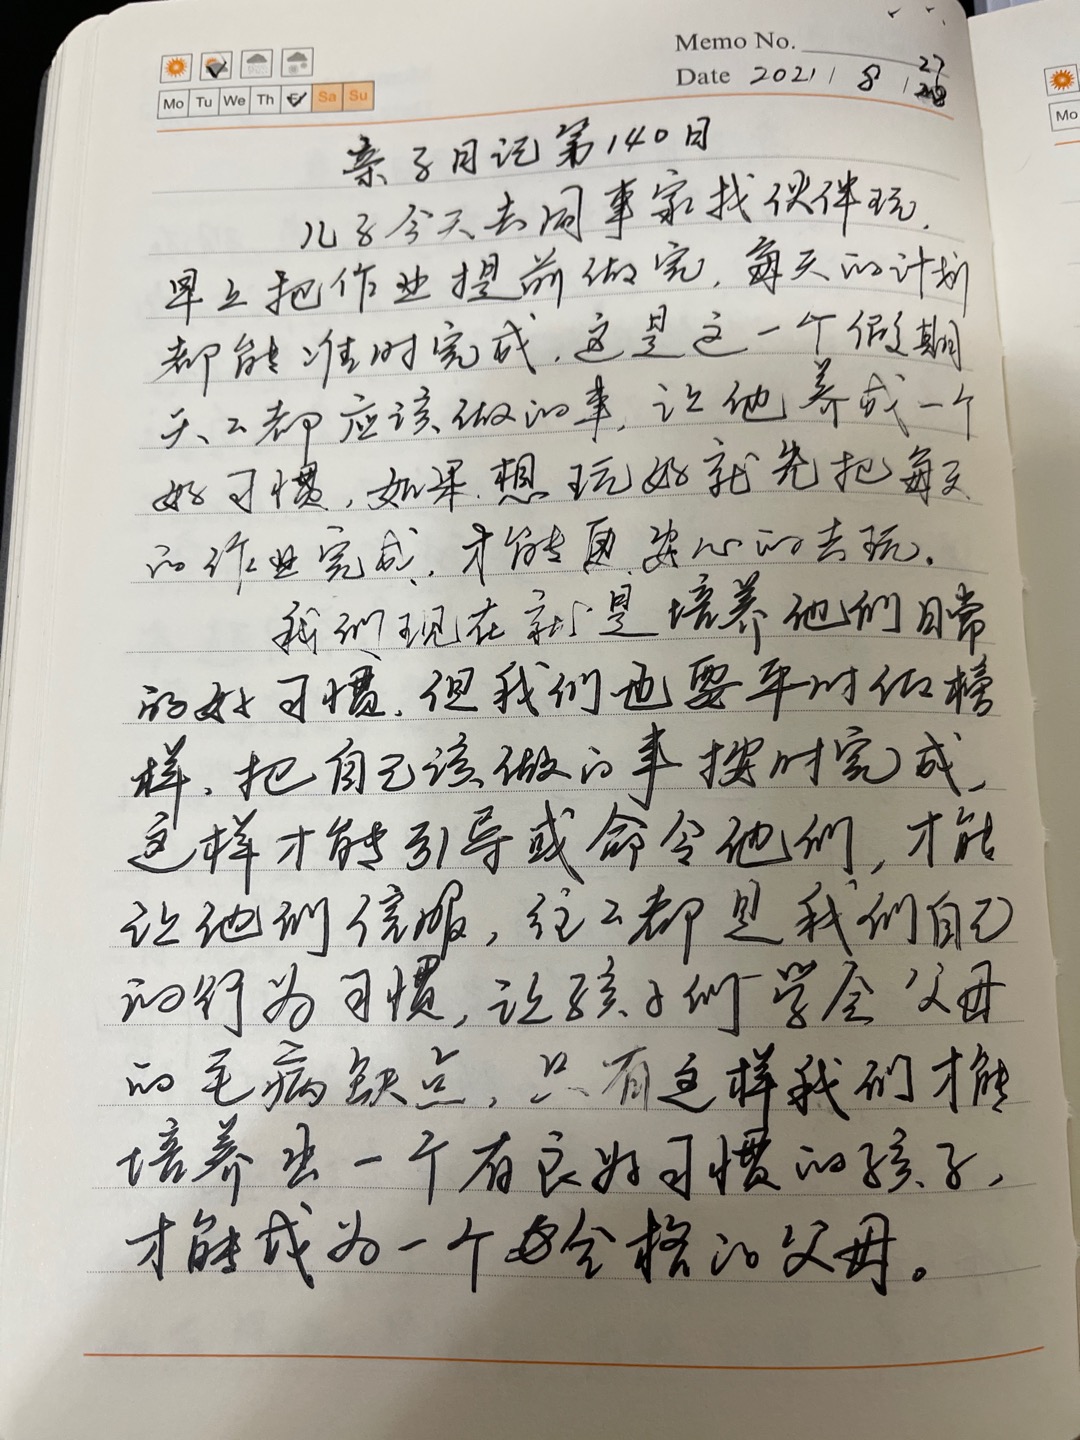 Memo No.
Mo Tu We Th Fr Sa Su
Date 2021 / 8 / 27
亲子日记第140日
儿子今天去同事家找伙伴玩,
早上把作业提前做完,每天的计划
都能准时完成,这是这一个假期
天々都应该做的事,让他养成一个
好习惯,如果想玩好就先把每天
的作业完成,才能更安心的去玩。
我们现在就是培养他们日常
的好习惯,但我们也要平时做榜
样,把自己该做的事按时完成,
这样才能引导或命令他们,才能
让他们信服,往々都是我们自己
的行为习惯,让孩子们学会父母
的毛病缺点,只有这样我们才能
培养出一个有良好习惯的孩子,
才能成为一个合格的父母。
Mo